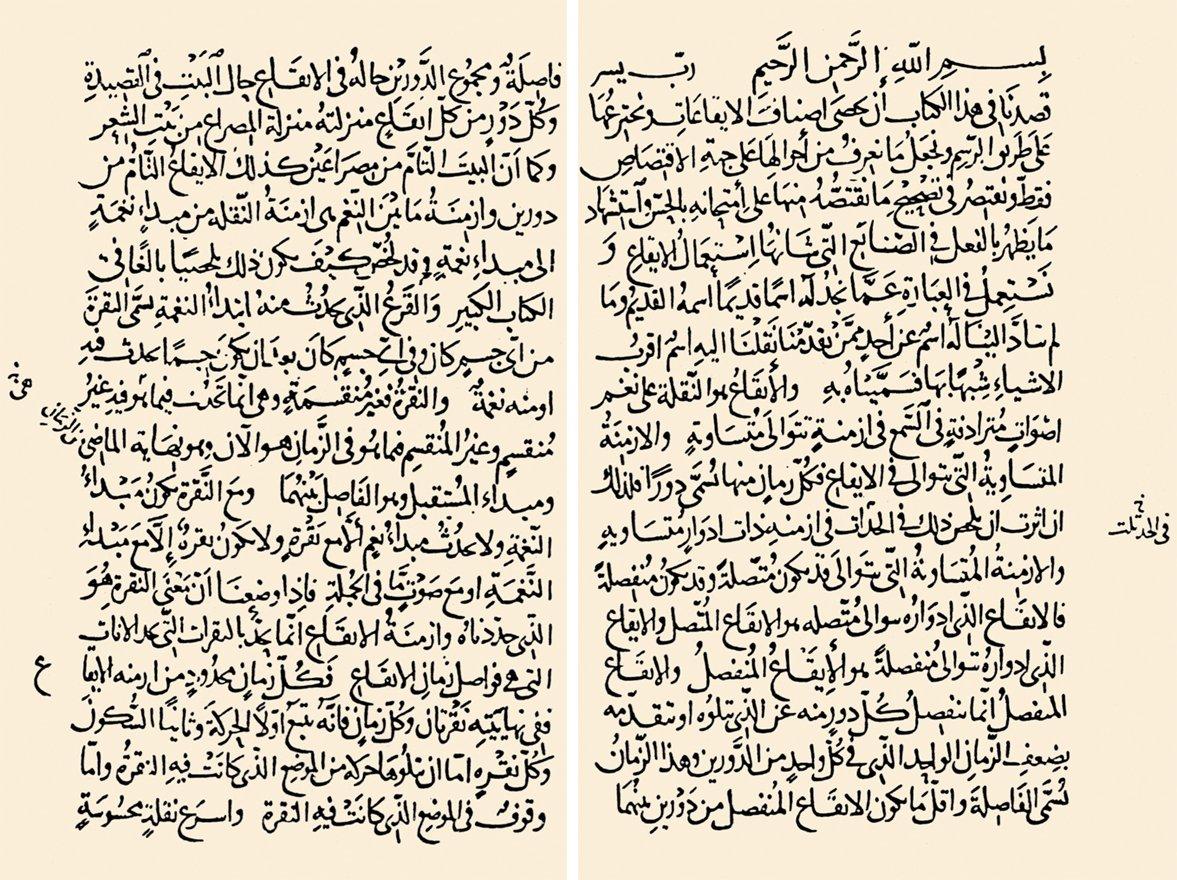 بسم الله الرَّحمن الرَّحيم رب يسر
قصدنا في هذا الكتاب ان نحصى اصناف الايقاعات ونخترعها
على طريق الرسم ونجعل ما نعرف من أحوالها على جهة الاقتصاص
فقط ونقتصر في تصحيح ما نقتصّه منها على أمتحانه بالحس واستشهاد
ما يظهر بالفعل في الصنائع التي شانها استعمال الايقاع و
نستعمل في العبارة عمّا نجد له اسمًا قديمًا اسمه القديم وما
لم يتأدّ الينا له اسم عن أحدٍ ممّن تقدّمنا نقلنا اليه اسم اقرب
الاشياء شبهًا بها فسمّيناه به والايقاع هو النقلة على نغم
اصواتٍ مترادفةٍ في السمع في ازمنةٍ تتوالى متساويةٍ والازمنة
المتساوية التي تتوالى في الايقاع فكلّ زمان منها يسمّى دورًا فلذلك
ان اثرت ان يلخص ذلك في الحدّ قلت في ازمنة ذات ادوارٍ متساويةٍ
والازمنة المتساوية التي تتوالى قد يكون متّصلةً وقد يكون منفصلةً
فالايقاع الذي ادواره يتوالى متّصله هو الايقاع المتّصل والايقاع
الذي ادواره تتوالى منفصلةً هو الإيقاع المنفصل والايقاع
المنفصل انّما ينفصل كلّ دورٍ منه عن الذي يتلوه او يتقدّمه
بضعف الزمان الواحد الذي في كلّ واحدٍ من الدّورين وهذا الزمان
يسمّى الفاصلة واقلّ ما يكون الايقاع المنفصل من دورين بينهما
فاصلةٌ ومجموع الدّورين حاله في الايقاع حال البيت في القصيدة
وكلّ دورٍ من كلّ ايقاعٍ منزلته منزلة المصراع من بيت الشعر
وكما انّ البيت التامّ من مصراعين كذلك الايقاع التّامّ من
دورين وازمنة ما بين النغم هي ازمنة النّقله من مبداءِ نغمةٍ
الى مبداءِ نغمةٍ وقد لخّص كيف يكون ذلك تلخيصًا بالغًا في
الكتاب الكبير والقرع الذي يحدث منه ابتداءُ النغمة يسمّى النقرة
من اىّ جسمٍ كان وفي اىّ جسمٍ كان بعد ان يكون جسمًا يحدث فيه
او منه نغمة والنقرة فغير منقسمةٍ وهي انّما تحدث فيما هو فيه غير
منقسمٍ وغير المنقسم فيما هو في الزّمان هو الآن وهو نهاية الماضي
ومبداء المستقبل وهو الفاصل بينهما ومع النّقرة يكون مبداءُ
النّغمة ولا يحدث مبداءُ نغمٍ إلّا مع نقرةٍ ولا يكون نقرةٌ إلّا مع مبداءِ
النّغمة او مع صوتٍ مّا في الجملة فإذا وضعنا انّ معنى النقرة هو
الذي حدّدناه وازمنة الايقاع انّما تحدّ بالنقرات التي تحد الانات
التي هي فواصل زمان الايقاع فكلّ زمانٍ محدودٍ من ازمنه الايقا
ع
ففي نهايتيه نقرتان وكلّ زمانٍ فانّه يتبع اوّلًا الحركة وثانيًا السّكون
وكلّ نقرةٍ امّا ان يتلوها حركة من الموضع الذي كانت فيه النقرة وامّا
وقوف في الموضع الذي كانت فيه النقرة واسرع نقلةٍ محسوسةٍ